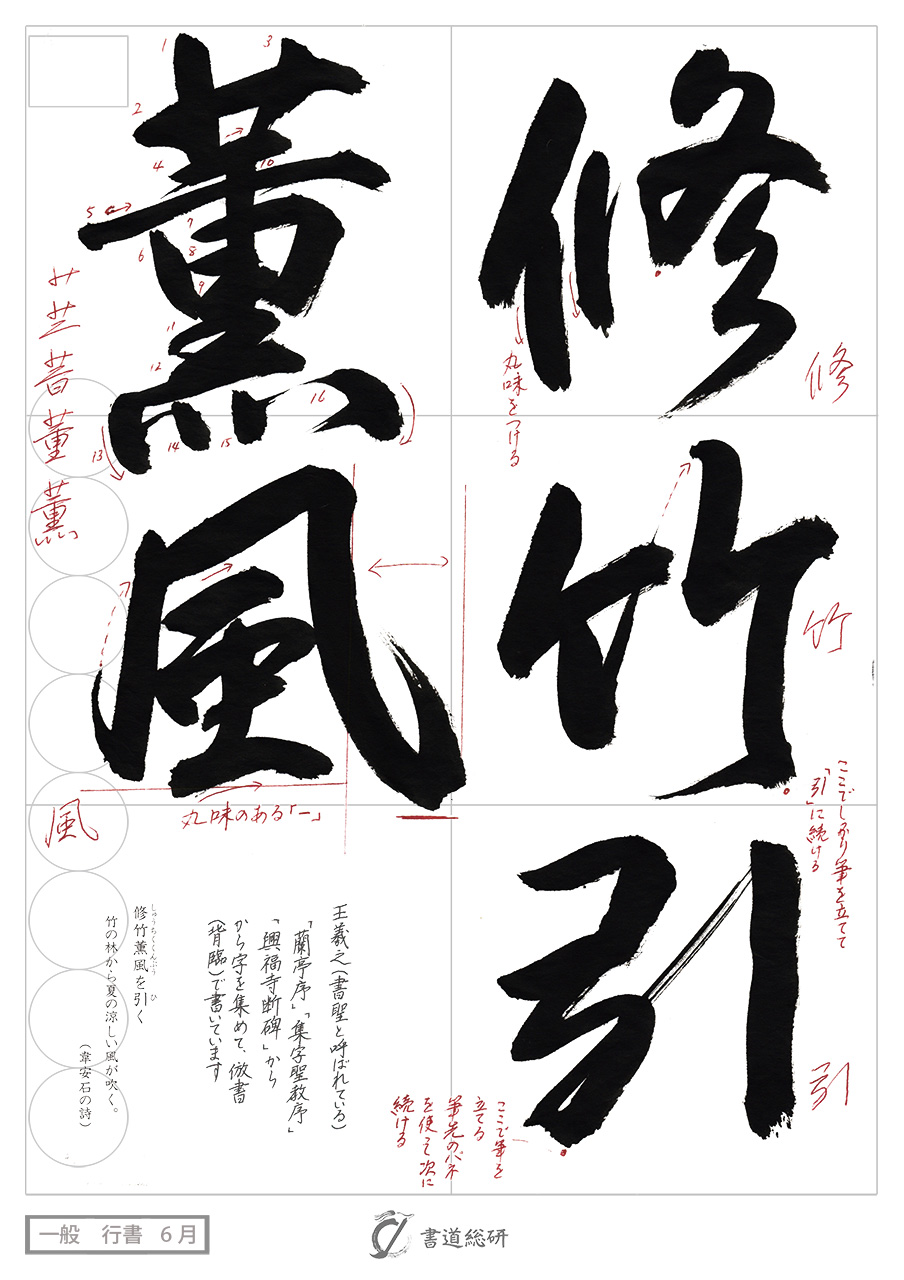 修竹引
薫風
修
竹
引
丸味をつける
ここでしっかり筆を立てて
「引」に続ける
ここで筆を
立てる
筆先のバネ
を使って次に
続ける
1
2
3
4
5
6
7
8
9
10
11
12
13
14
15
16
薫
丸味のある「一」
風
王羲之(書聖と呼ばれている)
「蘭亭序」「集字聖教序」
「興福寺断碑」から
から字を集めて、倣書
(背臨)で書いています
しゅうちくくんぷう ひ
修竹薫風を引く
竹の林から夏の涼しい風が吹く。
(韋安石の詩)
一般 行書 6月
書道総研